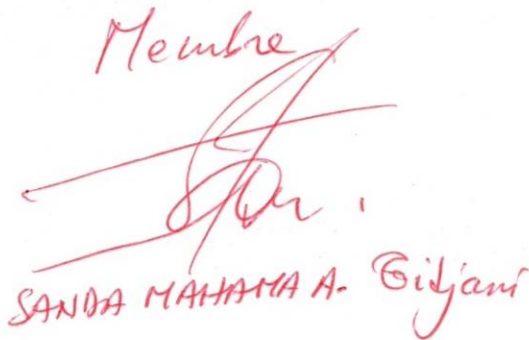 Membre
SANDA MAHAMA A. Tidjani